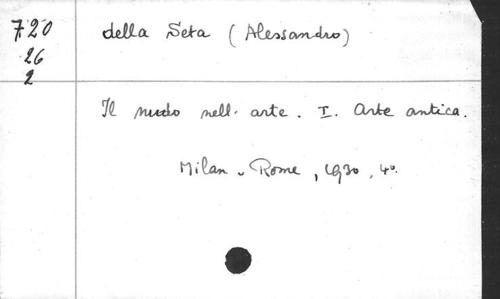 720
26
2
della Seta (Alessandro)
Il nudo nell' arte. I. Arte antica.
Milan - Rome, 1930, 4º.